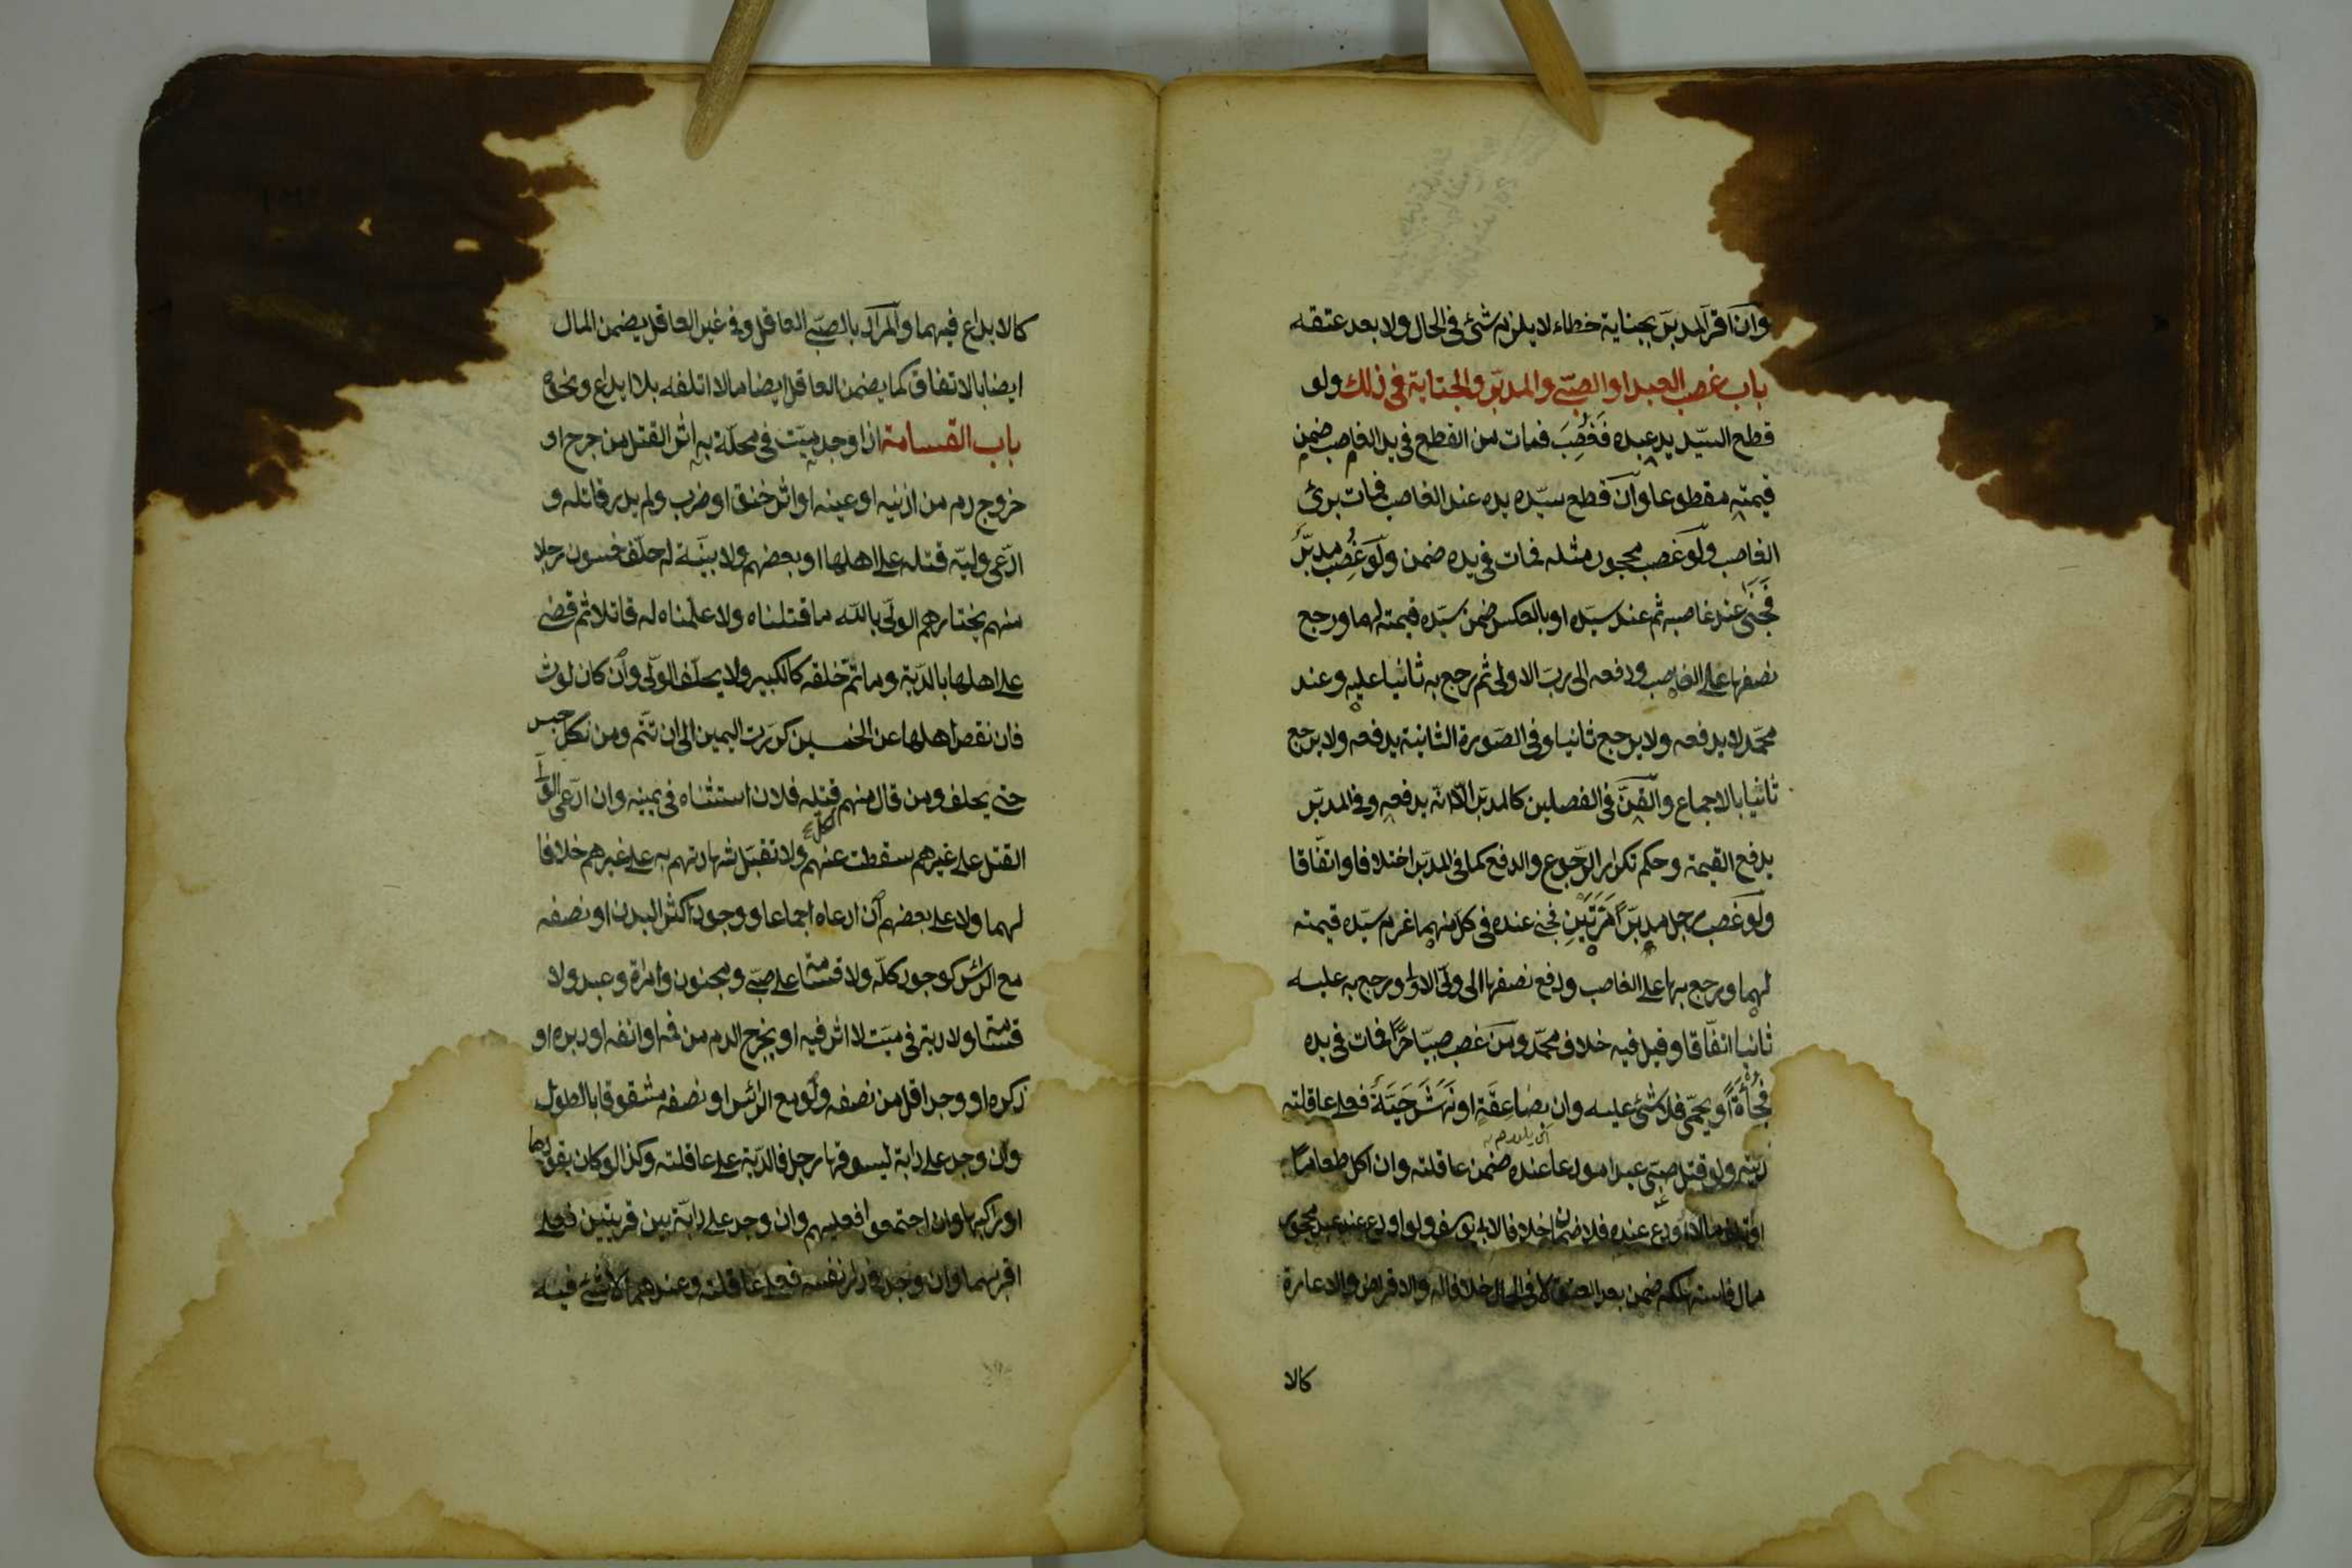 وان اقر المدبر بجناية خطاء لا يلزمه شئ فى الحال ولا بعد عتقه
باب غصب العبد او الصبى والمدبر والجناية فى ذلك ولو
قطع السيّد يد عبده فَغُصِبَ فمات من القطع فى يد الغاصب ضمن
قيمته مقطوعا وان قطع سيّده يده عند الغاصب فمات برئ
الغاصب ولو غصب محجور مثله فمات فى يده ضمن ولو غُصِب مدبّر
فَجَنَى عند غاصبه ثم عند سيّده او بالعكس ضمن سيّده قيمته لهما ورجع
نصفها على الغاصب ودفعه الى ربّ الاولى ثم رجع به ثانيا عليه وعند
محمّد لا يدفعه ولا يرجع ثانيا وفى الصّورة الثانية يدفعه ولا يرجع
ثانيا بالاجماع والقنّ فى الفصلين كالمدبّر الّا انّه يدفعه وفى المدبّر
يدفع القيمة وحكم تكرار الرّجوع والدفع كما فى المدبّر اختلافا واتّفاقا
ولو غصب رجل مدبّرًا مَرَّتَيْنِ فجنى عنده فى كلّ منهما غرم سيّده قيمته
لهما ورجع بها على الغاصب ودفع نصفها الى ولىّ الاولى ورجع به عليه
ثانيا اتّفاقا وقيل فيه خلاف محمّد ومن غصب صبيّا حرًّا فمات فى يده
فُجْأَةً او بحمّى فلا شئ عليه وان بصاعِقَةٍ او نَهْشَ حَيَّةٍ فعلى عاقلته
ديته ولو قتل صبىّ عبدا مودعا عنده ضمن عاقلته وان اكل طعاما
او تلف مالا اودع عنده فلا ضمان خلافا لابى يوسف ولو اودع عند عبد محجور
مال فاستهلكه ضمن بعد العتق لا فى الحال خلافا له والاقراض والاعارة
كالا
كالايداع فيهما والمراد بالصبّى العاقل وفى غير العاقل يضمن المال
ايضا بالاتفاق كما يضمن العاقل ايضا مالا اتلفه بلا ايداع ونحوه
باب القسامة اذا وجد ميّت فى محلّة به اثر القتل من جرح او
خروج دم من اذنيه او عينه او اثر خنق او ضرب ولم يدر قاتله و
ادّعى وليّه قتله على اهلها او بعضهم ولا بيّنة له حلّف خمسون رجلا
منهم يختارهم الولىّ بالله ما قتلناه ولا علمناه له قاتلا ثم قضى
على اهلها بالدّية وما تمّ خلقه كالكبير ولا يحلّف الولىّ وان كان لوث
فان نقص اهلها عن الخمسين كرّرت اليمين الى ان تتم ومن نكل حبس
حتى يحلف ومن قال منهم قتله فلان استثناه فى يمينه وان ادّعى الولى
القتل على غيرهم سقطت عنهم ولا تقبل شهادتهم به على غيرهم خلافا
لهما ولا على بعضهم ان ادعاه اجماعا ووجود اكثر البدن او نصفه
مع الرأس كوجود كلّه ولا قسامة على صبى ومجنون وامرأة وعبد ولا
قسامة ولا دية فى ميّت لا اثر فيه او يخرج الدم من فمه او انفه او دبره او
ذكره او وجد اقل من نصفه ولو مع الرأس او نصفه مشقوقا بالطول
وان وجد على دابة يسوقها رجل فالدّية على عاقلته وكذا لو كان يقودها
او راكبها وان اجتمعوا فعليهم وان وجد على دابّة بين قريتين فعلى
اقربهما وان وجد فى دار نفسه فعلى عاقلته وعندهما لا شئ فيه